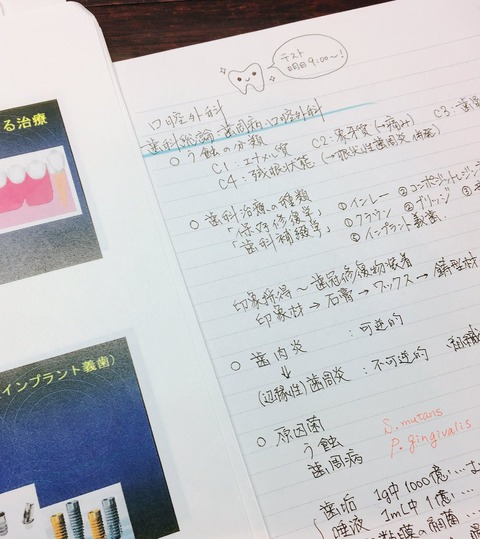 る治療
インプラント義歯)
テスト
明日9:00～!
口腔外科
歯科総論 歯周病 口腔外科
○ う蝕の分類
C1:エナメル質 C2:象牙質(→痛み) C3:歯髄
C4:残根状態 (→根尖性歯周炎
○ 歯科治療の種類
「保存修復学」 ①インレー ②コンポジットレジン
「歯科補綴学」 ①クラウン ②ブリッジ ③
④インプラント義歯
印象採得～歯冠修復物装着
印象材→石膏→ワックス→鋳型材
○ 歯肉炎 :可逆的
↓
(辺縁性)歯周炎 :不可逆的 組織
○ 原因菌
う蝕 S.mutans
歯周病 P.gingivalis
歯垢 1g中1000億…
唾液 1mL中1億…
粘膜の細菌…